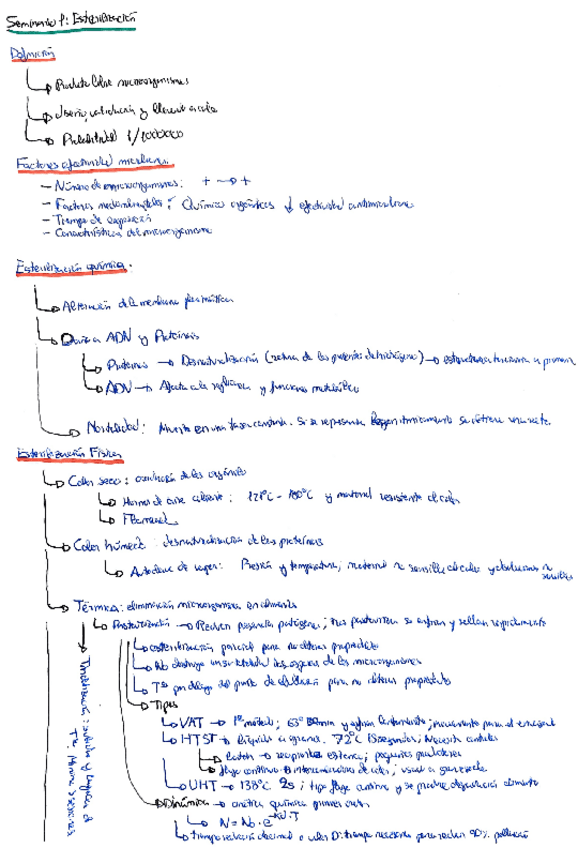 Seminario 1: Esterilización
Definición
Producto libre microorganismos
diseño, validación y llevar a cabo
Probabilidad 1/1000000
Factores efectividad
- Número de microorganismos: + → +
- Factores medioambientales: Química orgánicos ↓ efectividad antimicrobiana
- Tiempo de exposición
- Características del microorganismo
Esterilización química:
Alteración de la membrana plasmática
Daño a ADN y Proteínas
Proteínas → Desnaturalización (rotura de los puentes de hidrógeno) → estructura terciaria a primaria
ADN → Afecta a la replicación y funciones metabólicas
Mortalidad: Muerte en una tasa constante. Si se representa logarítmicamente se obtiene una recta.
Esterilización Física
Calor seco: oxidación de los orgánulos
Hornos de aire caliente: 121ºC - 180ºC y material resistente al calor
Flameado
Calor húmedo: desnaturalización de las proteínas
Autoclave de vapor: Presión y temperatura; material sensible al calor
Térmica: eliminación microorganismos en alimentos
Pasteurización → Reducen patógenos; tras pasteurizar se enfrían y sellan rápidamente
esterilización parcial para no alterar propiedades
No destruye en su totalidad las esporas de los microorganismos
Tª por debajo del punto de ebullición para no alterar propiedades
Tipos
VAT → 1er método; 63ºC 30min y enfriar lentamente;
HTST → líquido a granel. 72ºC 15segundos; Necesita
Batch → recipientes estanco; pequeños productores
flujo continuo → intercambiador de calor; usual a gran escala
UHT → 138ºC 2s; tipo flujo continuo y se produce degradación alimento
Dinámica → cinética química primer orden
N = N₀ · e
tiempo reducción decimal o valor D: tiempo necesario para reducir 90% población